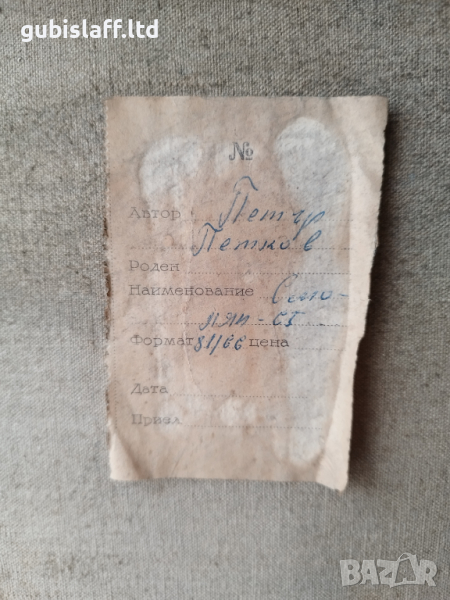 gubislaff.ltd
№
Автор Петър
Петков
Роден
Наименование
Формат 81/66 цена
Дата
Приел
BAZAR